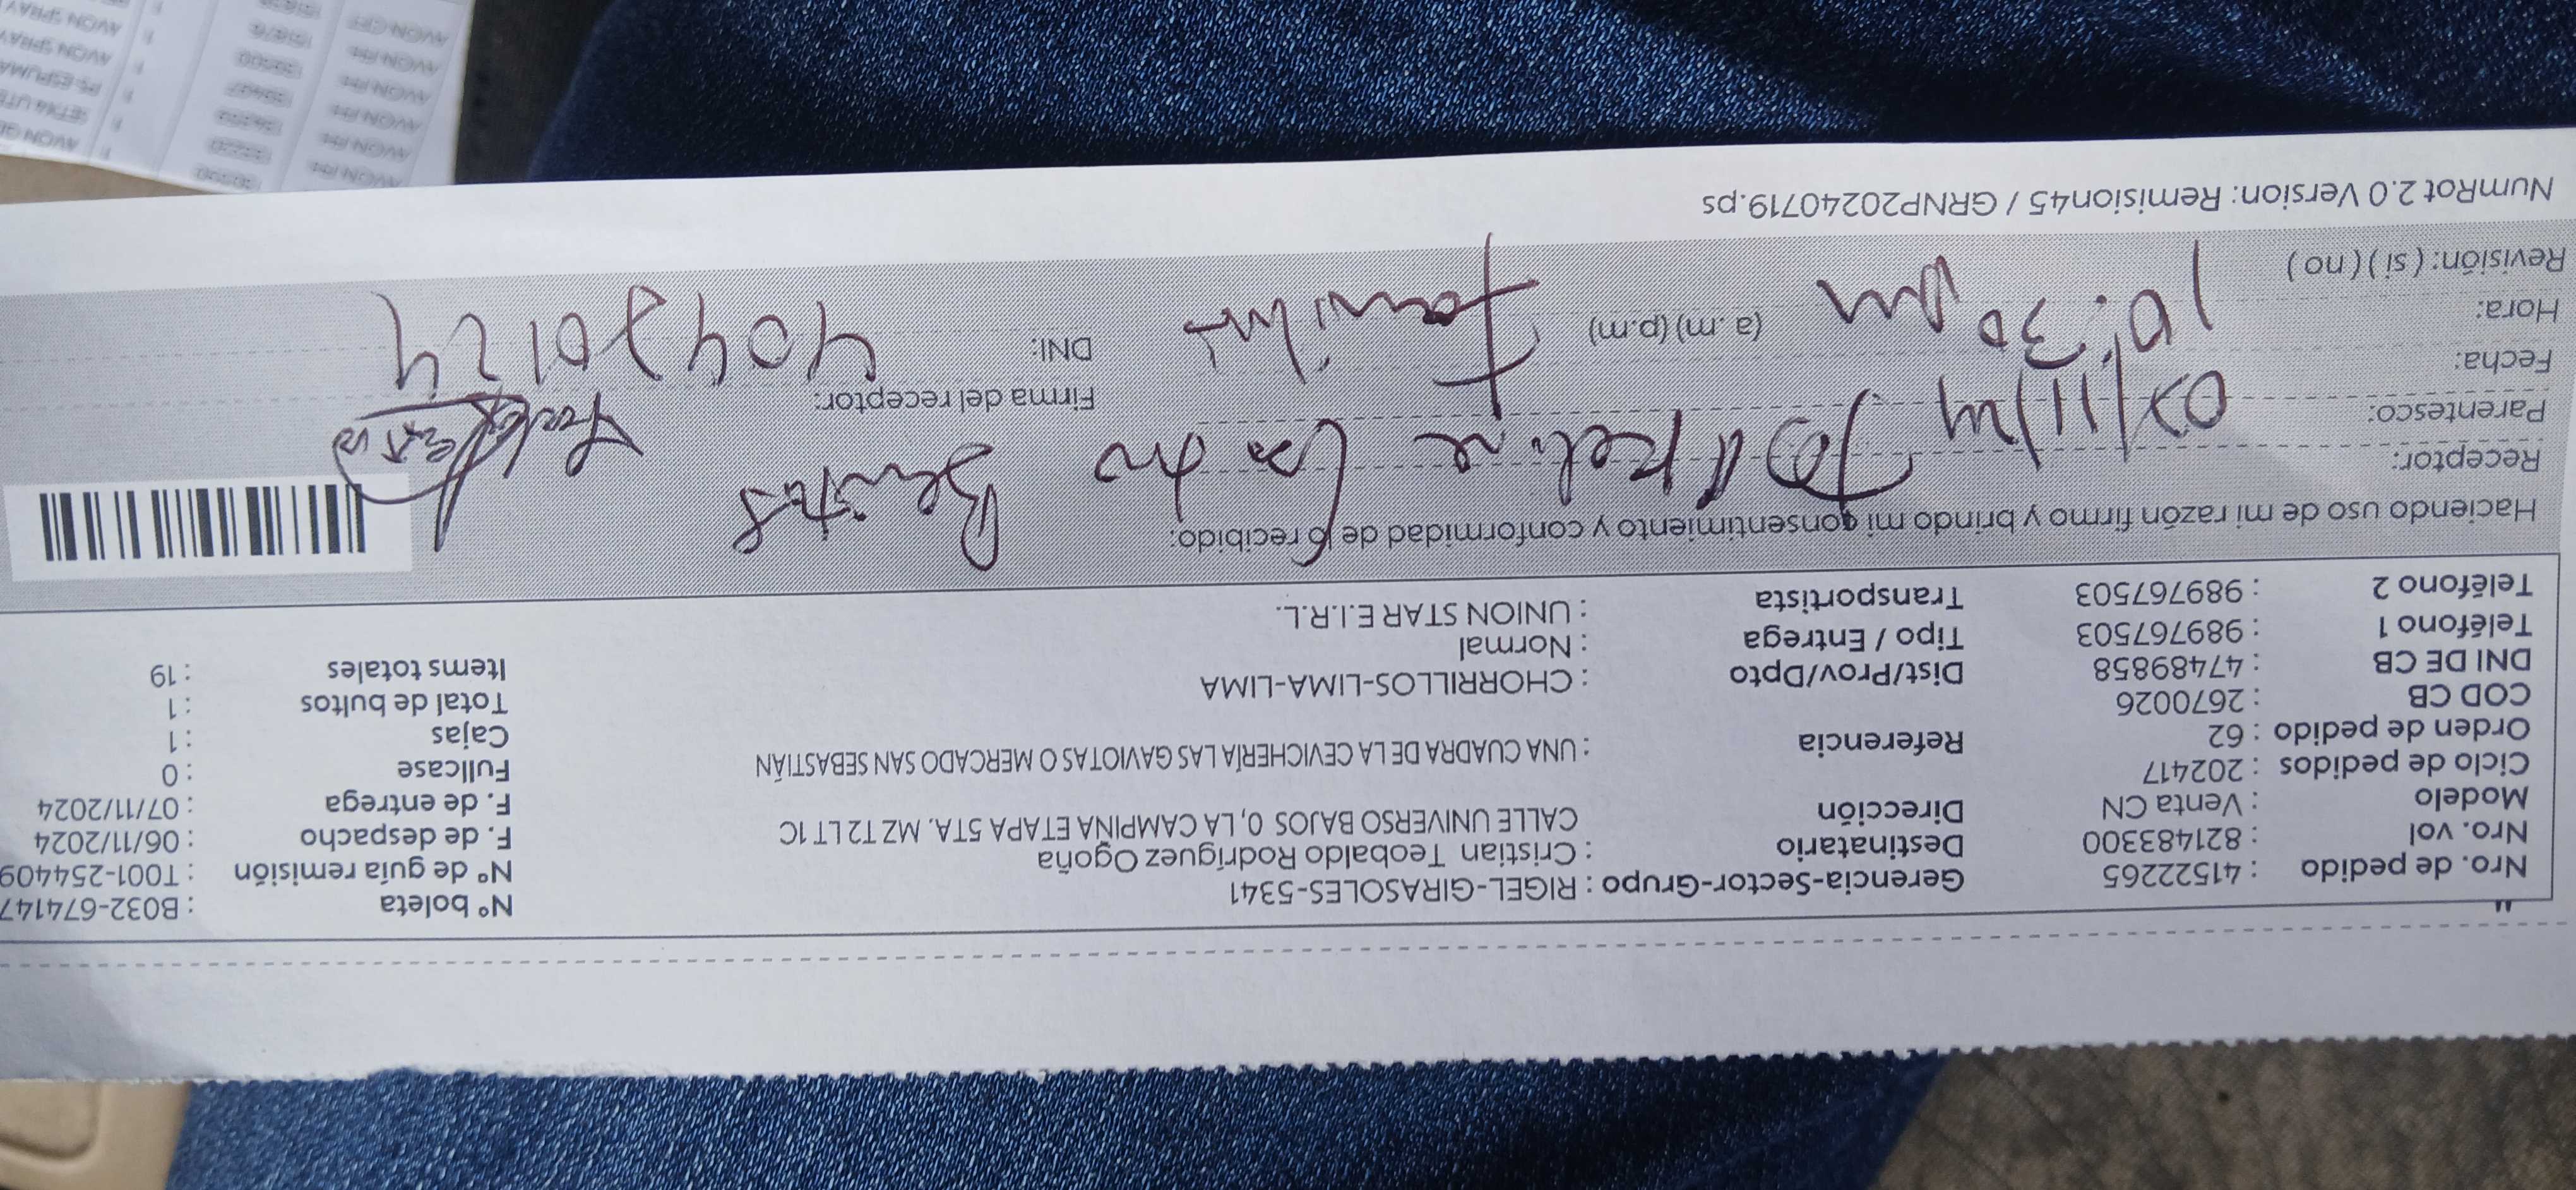 Nro. de pedido : 41522265 Gerencia-Sector-Grupo : RIGEL-GIRASOLES-5341 N° boleta : B032-674147
Nro. vol : 821483300 Destinatario : Cristian Teobaldo Rodríguez Ogoña N° de guía remisión : T001-254409
Modelo : Venta CN Dirección CALLE UNIVERSO BAJOS 0, LA CAMPIÑA ETAPA 5TA. MZ T2 LT 1C F. de despacho : 06/11/2024
Ciclo de pedidos : 202417 F. de entrega : 07/11/2024
Orden de pedido : 62 Referencia : UNA CUADRA DE LA CEVICHERÍA LAS GAVIOTAS O MERCADO SAN SEBASTIÁN Fullcase : 0
COD CB : 2670026 Cajas : 1
DNI DE CB : 47489858 Dist/Prov/Dpto : CHORRILLOS-LIMA-LIMA Total de bultos : 1
Teléfono 1 : 989767503 Tipo / Entrega : Normal Items totales : 19
Teléfono 2 : 989767503 Transportista : UNION STAR E.I.R.L.
Haciendo uso de mi razón firmo y brindo mi consentimiento y conformidad de lo recibido:
Receptor:
Parentesco: 07/11/24
Fecha: Firma del receptor:
Hora: 10:30 (a.m) (p.m) DNI: 40470124
Revisión: ( si ) ( no )
NumRot 2.0 Version: Remision45 / GRNP20240719.ps
AVON
AVON
AVON
AVON
AVON
AVON SPRAY